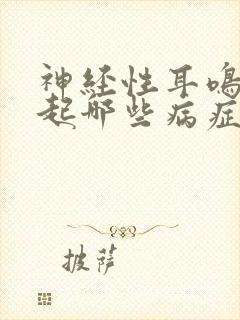 神经性耳鸣
起哪些病症
披萨